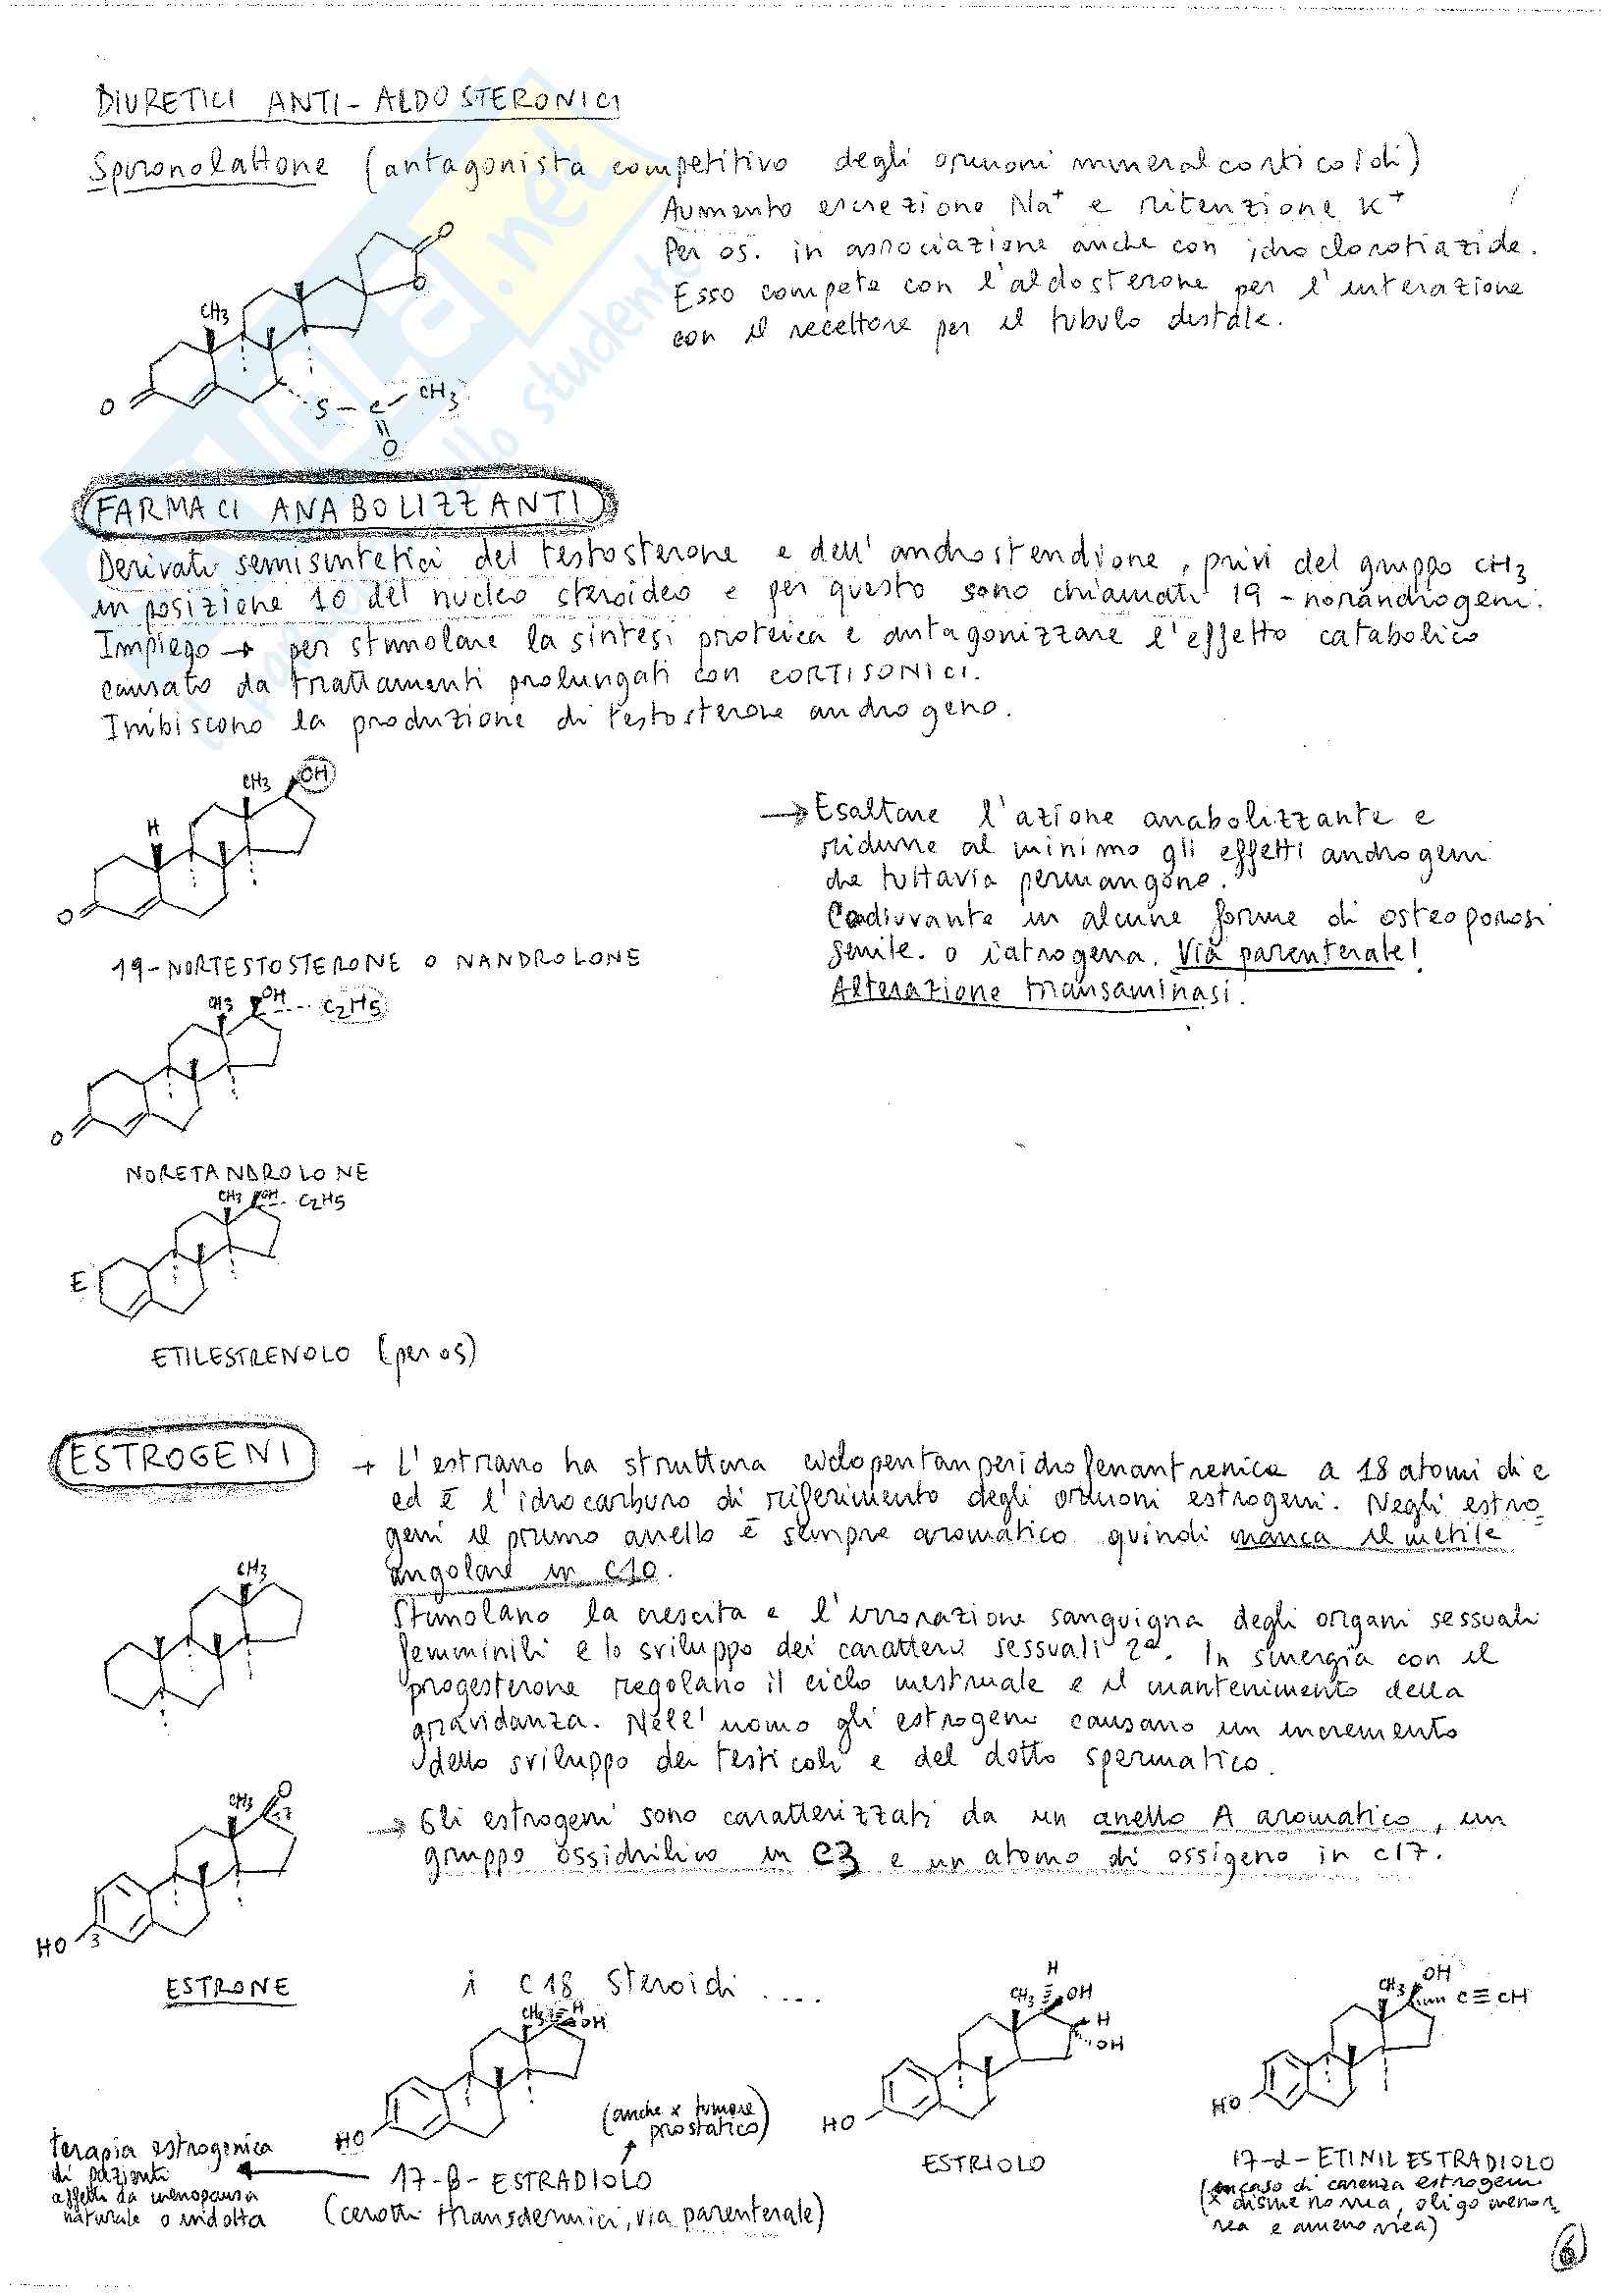 DIURETICI ANTI-ALDOSTERONICI
Spironolattone (antagonista competitivo degli ormoni mineralcorticoidi)
Aumento escrezione Na⁺ e ritenzione K⁺
Per os. in associazione anche con idroclorotiazide.
Esso compete con l'aldosterone per l'interazione
con il recettore per il tubulo distale.
CH3
O
O
O
S-C-CH3
O
FARMACI ANABOLIZZANTI
Derivati semisintetici del testosterone e dell'androstendione, privi del gruppo CH3
in posizione 10 del nucleo steroideo e per questo sono chiamati 19-norandrogeni.
Impiego → per stimolare la sintesi proteica e antagonizzare l'effetto catabolico
causato da trattamenti prolungati con CORTISONICI.
Inibiscono la produzione di testosterone androgeno.
CH3 OH
H
O
19-NORTESTOSTERONE O NANDROLONE
→ Esaltare l'azione anabolizzante e
ridurre al minimo gli effetti androgeni
che tuttavia permangono.
Coadiuvante in alcune forme di osteoporosi
senile. o iatrogena. Via parenterale!
Alterazione transaminasi.
CH3 OH C2H5
O
NORETANDROLONE
CH3 OH C2H5
E
ETILESTRENOLO (per os)
ESTROGENI
→ L'estrano ha struttura ciclopentanperidrofenantrenica a 18 atomi di C
ed è l'idrocarburo di riferimento degli ormoni estrogeni. Negli estro
geni il primo anello è sempre aromatico quindi manca il metile
angolare in C10.
CH3
Stimolano la crescita e l'irrorazione sanguigna degli organi sessuali
femminili e lo sviluppo dei caratteri sessuali 2ⁱ. In sinergia con il
progesterone regolano il ciclo mestruale e il mantenimento della
gravidanza. Nell'uomo gli estrogeni causano un incremento
dello sviluppo dei testicoli e del dotto spermatico.
→ Gli estrogeni sono caratterizzati da un anello A aromatico, un
gruppo ossidrilico in C3 e un atomo di ossigeno in C17.
CH3 O
17
HO 3
ESTRONE
i C18 steroidi ....
CH3 H
OH
HO
(anche x tumore
prostatico)
17-β-ESTRADIOLO
(cerotti transdermici, via parenterale)
terapia estrogenica
di pazienti
affetti da menopausa
naturale o indotta
H
CH3 OH
H
OH
HO
ESTRIOLO
OH
CH3 C≡CH
HO
17-α-ETINILESTRADIOLO
(in caso di carenza estrogeni
x dismenorrea, oligomenor
rea e amenorrea)
6